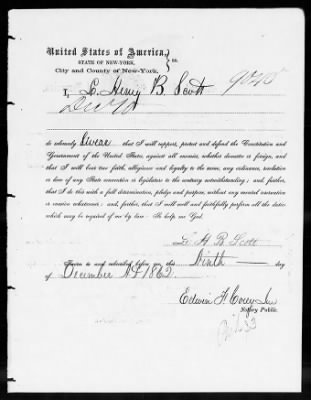 United States of America,
STATE OF NEW-YORK,
City and County of New-York. } ss.
I, L. Henry B. Scott 9040
do solemnly Swear that I will support, protect and defend the Constitution and
Government of the United States, against all enemies, whether domestic or foreign, and
that I will bear true faith, allegiance and loyalty to the same, any ordinance, resolution
or law of any State convention or legislature to the contrary notwithstanding; and further,
that I do this with a full determination, pledge and purpose, without any mental reservation
or evasion whatsoever; and, further, that I will well and faithfully perform all the duties
which may be required of me by law. So help me God.
L. H B Scott
Sworn to and subscribed before me, this Ninth day
of December AD 1862
Edwin F. Corey Jun
Notary Public.